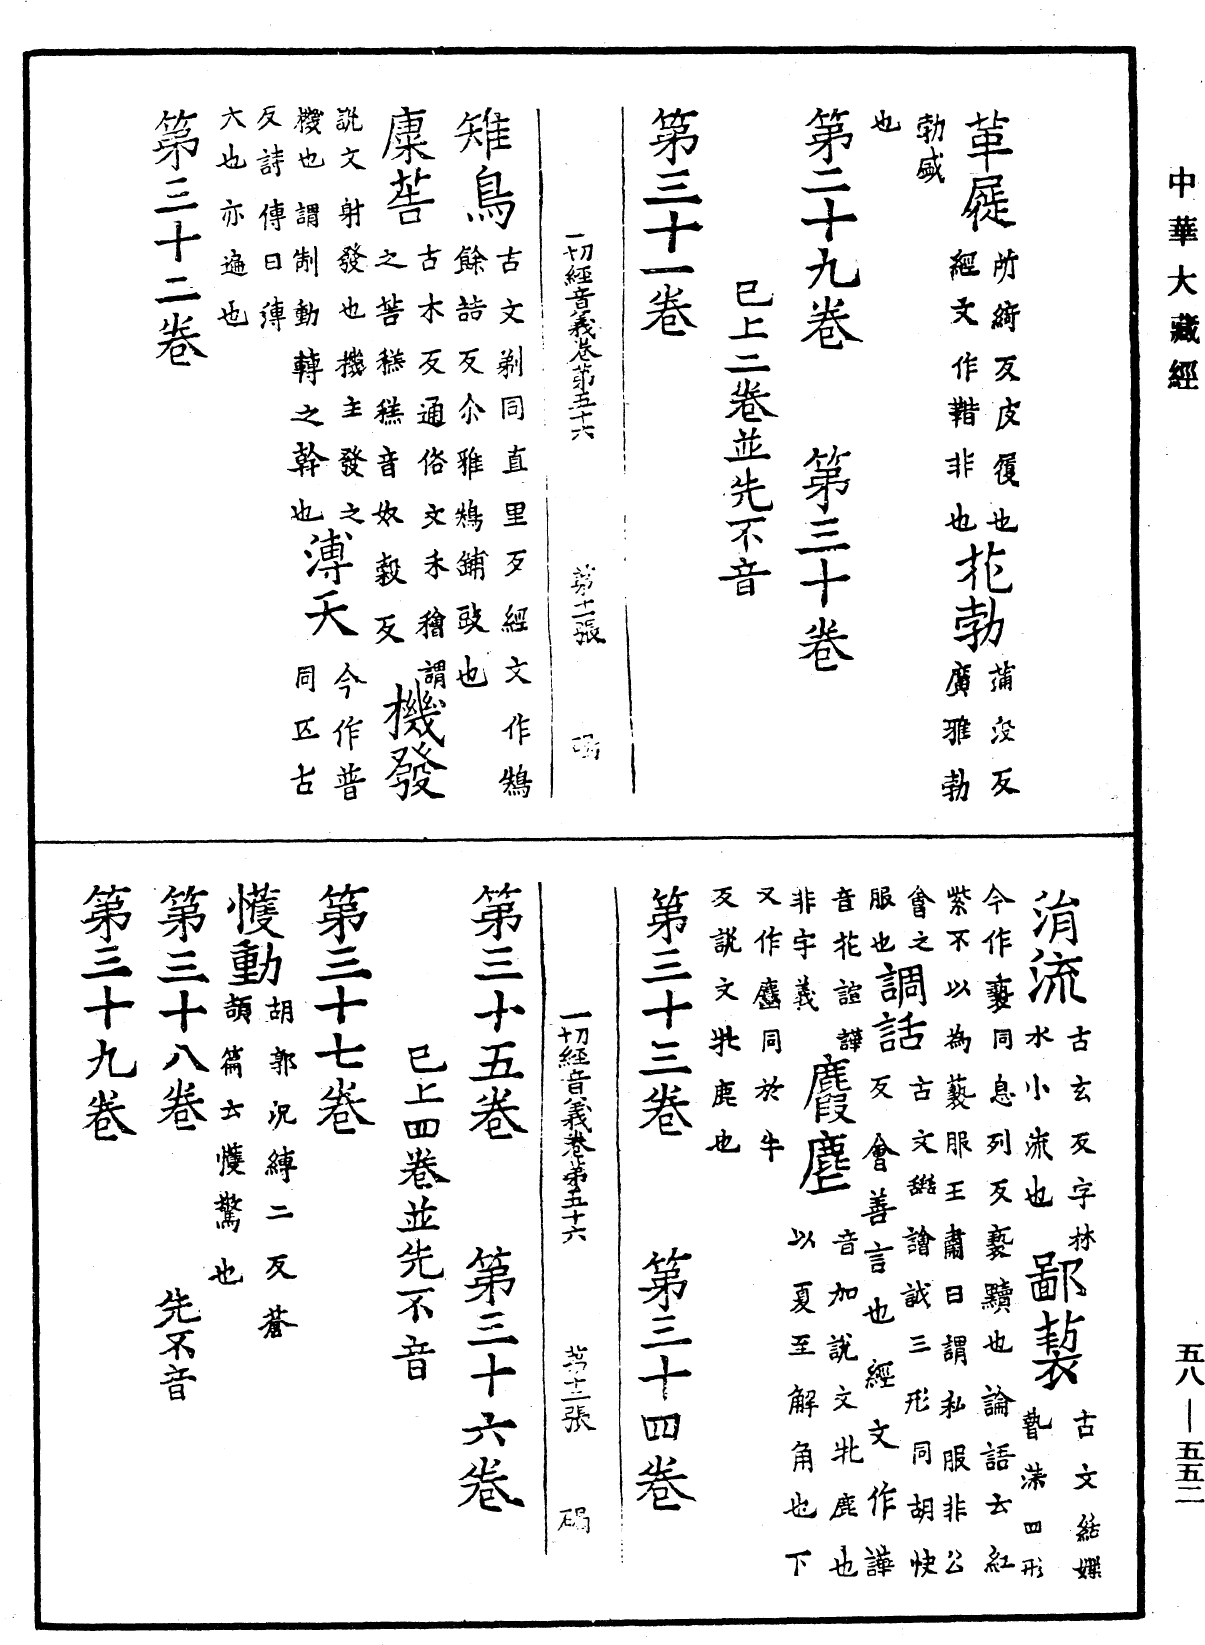 中華大藏經
革屣 所綺反皮履也經文作鞜非也 𣎴勃 蒲沒反廣雅勃
勃盛
也
第二十九卷 第三十卷
已上二卷並先不音
第三十一卷
一切經音義卷第五十六 第十一張 碣
雉鳥 古文𠛬同直里反經文作鴩餘詰反尒雅鴩鋪豉也
稟䓘 古木反通俗文禾稽謂之䓘𥻸𥻸音奴穀反 機發
說文射發也機主發之
機也謂制動轉之幹也 溥天 今作普同匹古
反詩傳曰溥
大也亦遍也
第三十二卷
涓流 古玄反字林水小流也 鄙褻 古文結媟暬渫四形
今作褻同息列反褻黷也論語云紅
紫不以為褻服王肅曰謂私服非公
會之服也 調話 古文䛡譮諙三形同胡快反會善言也經文作譁
音花諠譁非字義 麚麈 音加說文牝鹿也以夏至解角也下
又作麠同於牛
反說文牝鹿也
第三十三卷 第三十四卷
一切經音義卷第五十六 第十二張 碣
第三十五卷 第三十六卷
已上四卷並先不音
第三十七卷
戄動 胡郭況縛二反蒼頡篇云戄驚也
第三十八卷 先不音
第三十九卷
五八—五五二